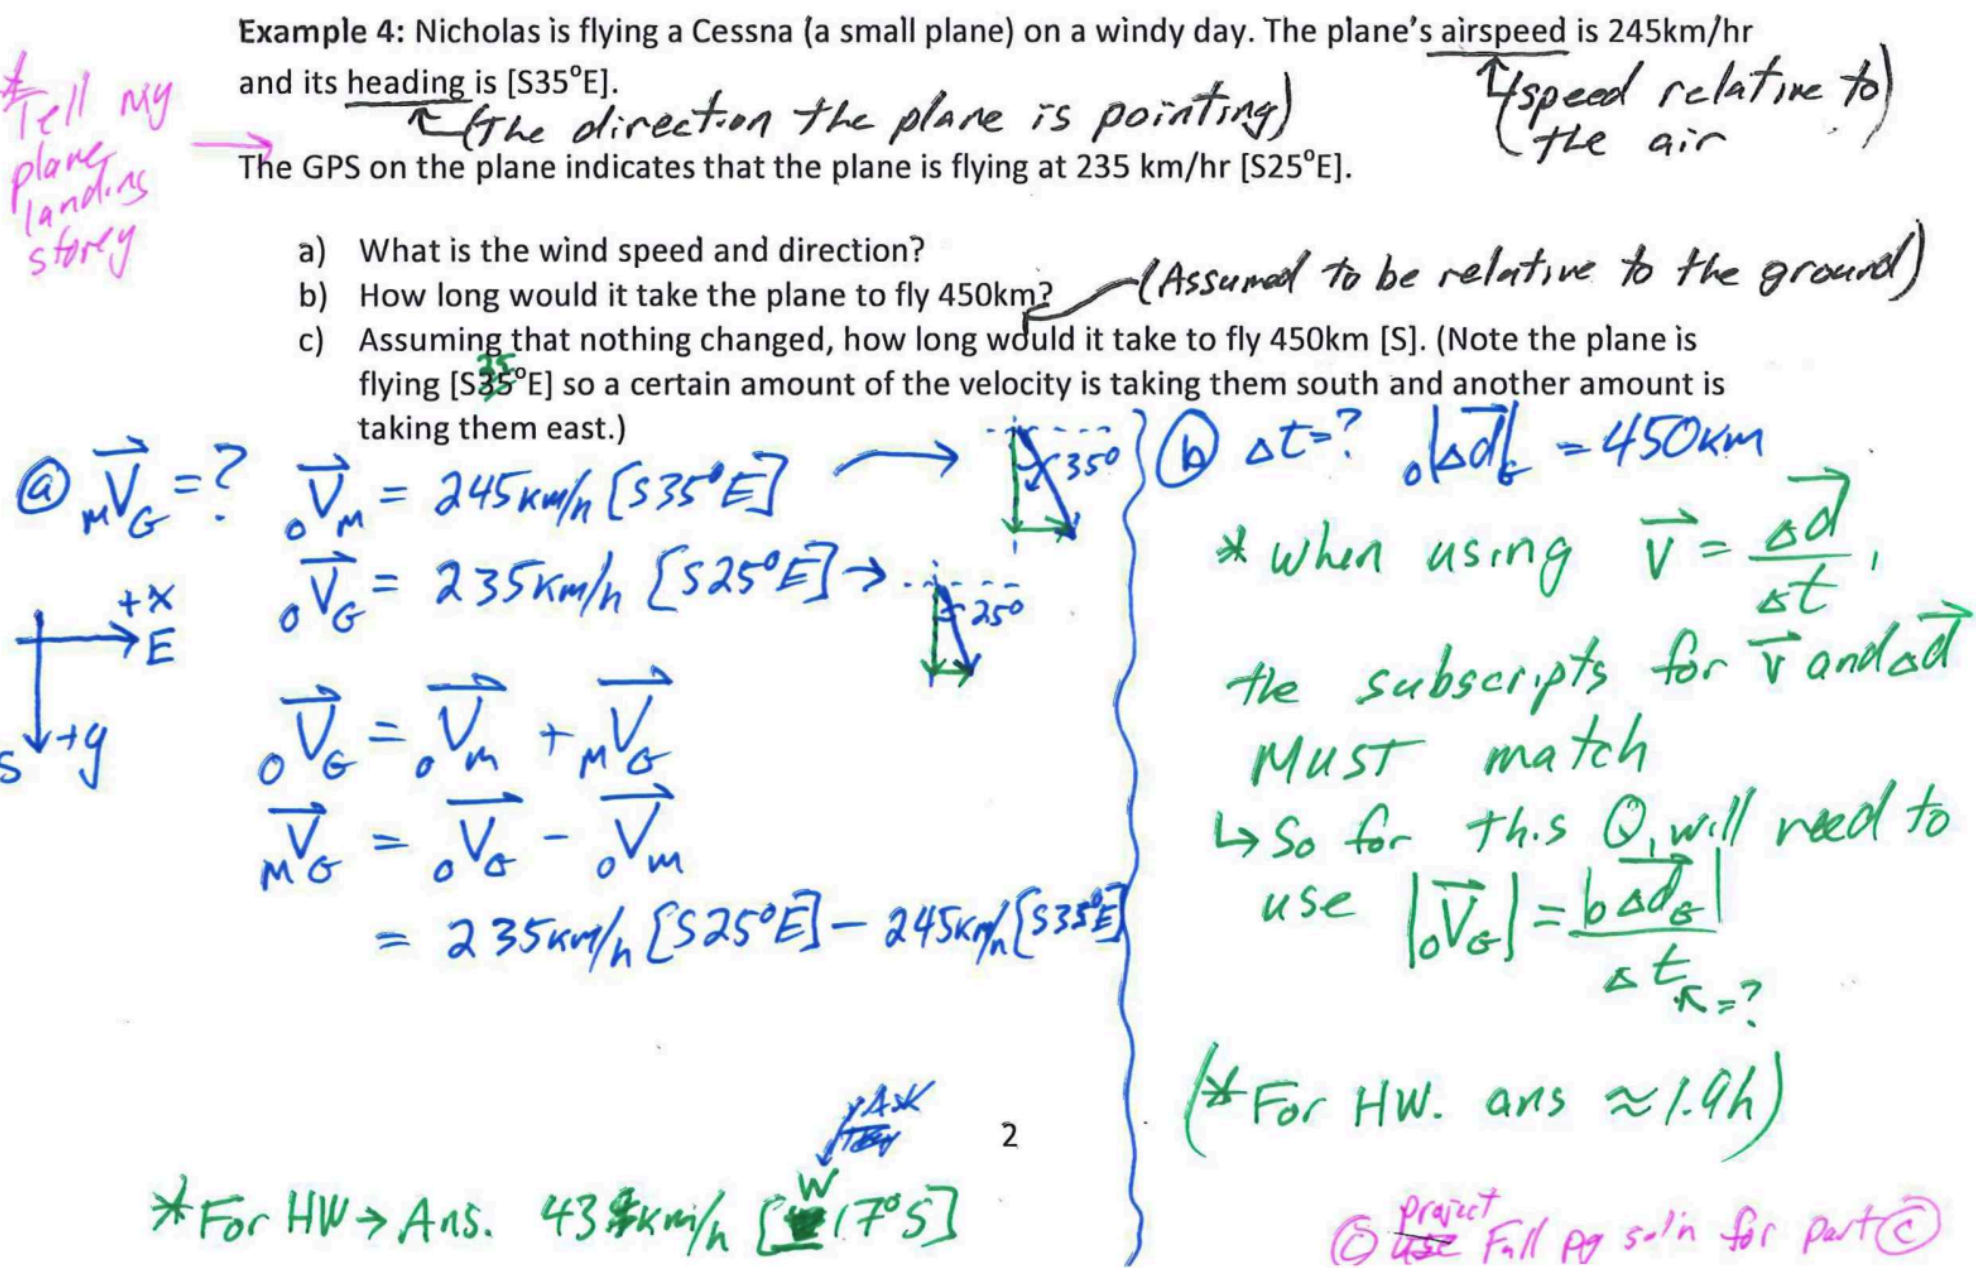 Example 4: Nicholas is flying a Cessna (a small plane) on a windy day. The plane's airspeed is 245km/hr
and its heading is [S35°E].
(speed relative to
the air)
(the direction the plane is pointing)
* Tell my
plane
landing
storey
The GPS on the plane indicates that the plane is flying at 235 km/hr [S25°E].
a) What is the wind speed and direction?
(Assumed to be relative to the ground)
b) How long would it take the plane to fly 450km?
c) Assuming that nothing changed, how long would it take to fly 450km [S]. (Note the plane is
flying [S35°E] so a certain amount of the velocity is taking them south and another amount is
taking them east.)
ⓐ MV⃗G = ? OV⃗M = 245km/h [S35°E] → 35°
OV⃗G = 235km/h [S25°E] → 25°
+x
E
S +y
OV⃗G = OV⃗M + MV⃗G
MV⃗G = OV⃗G - OV⃗M
= 235km/h [S25°E] - 245km/h [S35°E]
Ask
* For HW → Ans. 43km/h [W17°S]
2
ⓑ Δt=? |OΔd⃗G| = 450km
* when using V⃗ = Δd⃗/Δt,
the subscripts for V⃗ and Δd⃗
MUST match
↳ So for this Q, will need to
use |OV⃗G| = |OΔd⃗G|/Δt ↖=?
(* For HW. ans ≈ 1.9h)
ⓒ project Full pg sol'n for part ⓒ